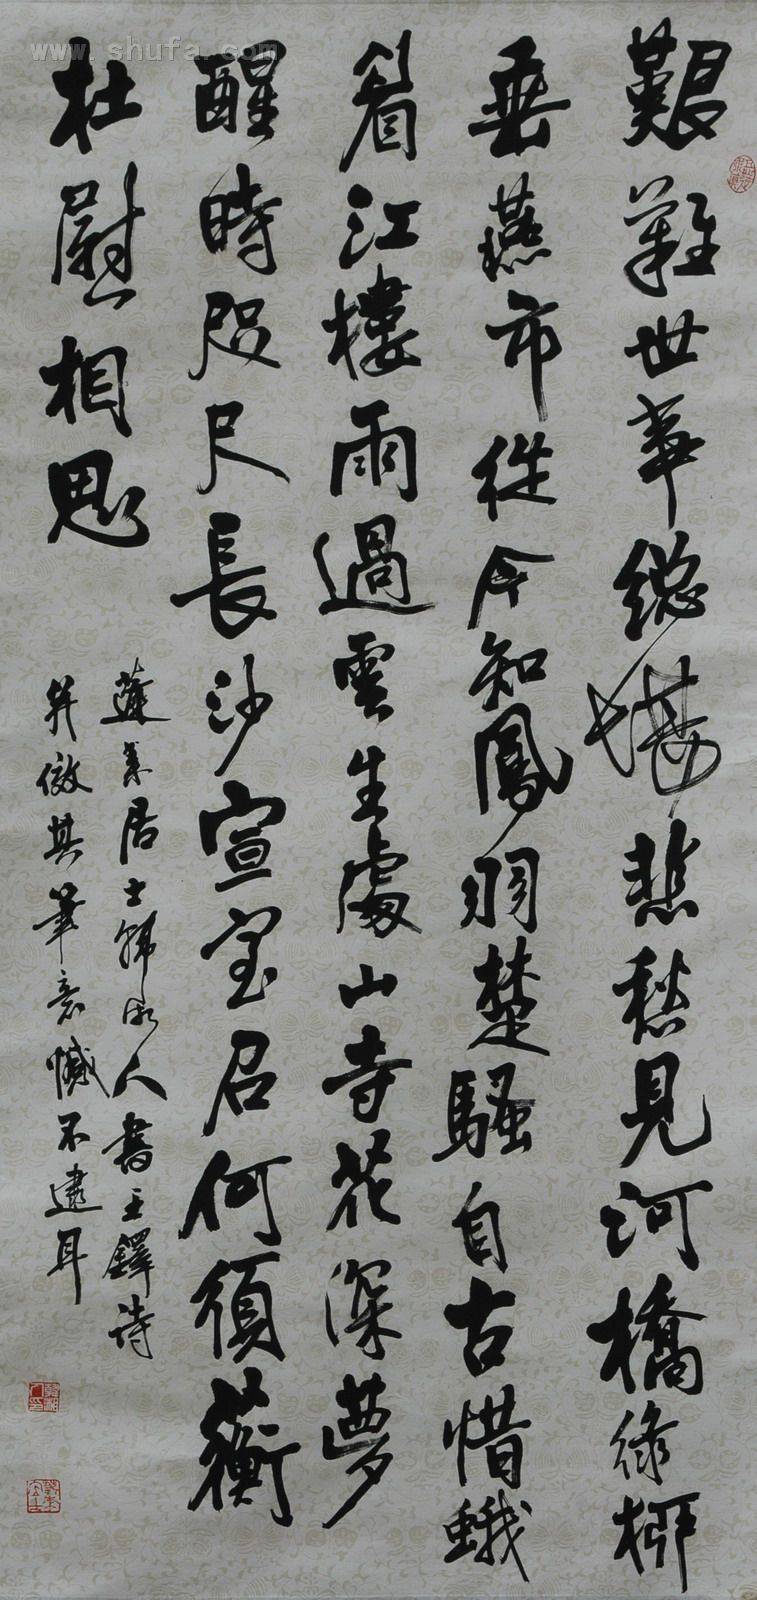 艱難世事總堪悲愁見河橋綠柳
垂燕市從今知鳳羽楚騷自古惜蛾
眉江樓雨過雲生處山寺花深夢
醒時咫尺長沙宣室召何須蘅
杜慰相思
蓬莱居士韩
人書王鐸詩
并仿其筆意憾不逮耳
www.shufa.com